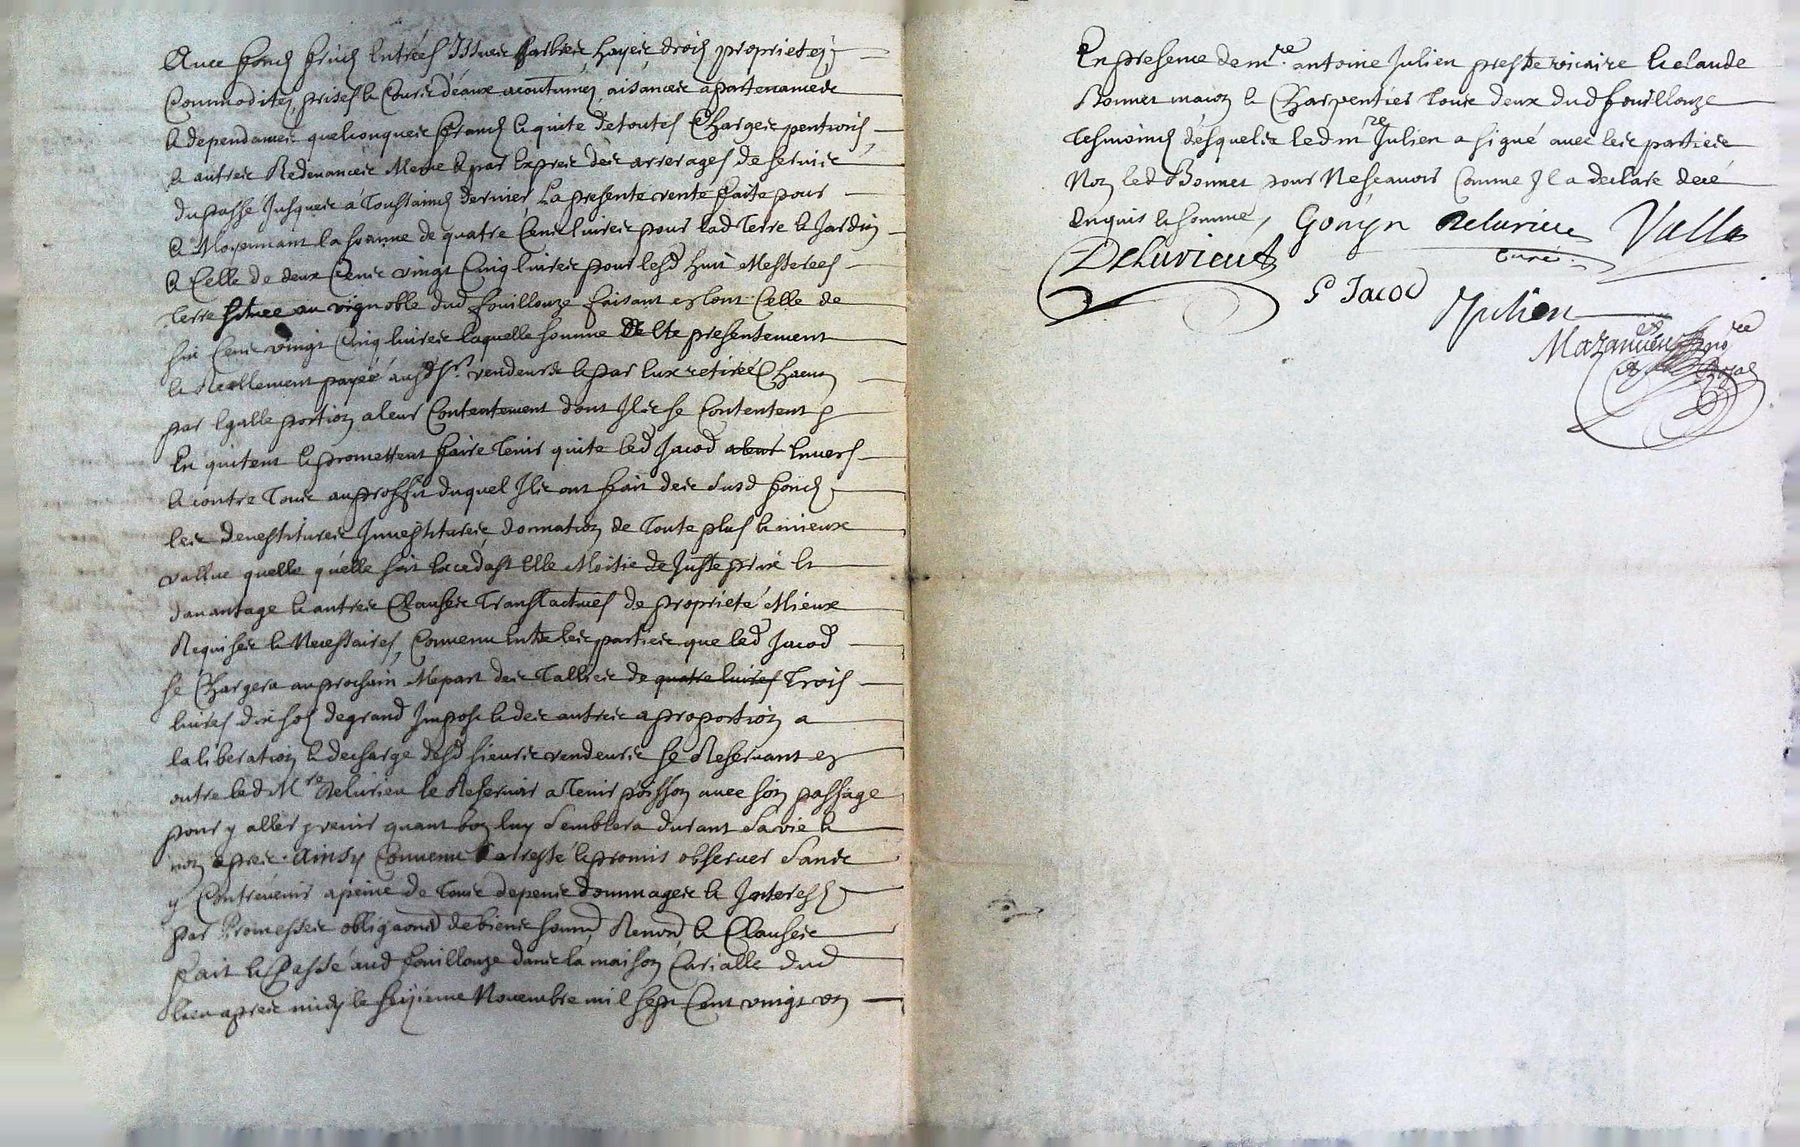 Avec fonds fruicts Entrées Issues Arbres hayes, droits proprietez
Commoditez prises & Cours d'eaux acoutumez aisances apartenances
& dependances quelconques francs & quite de toutes Charges pentions,
& autres Redevances Meme & par Exprès des arrerages de servis
du passé Jusques à Toussaincts dernier La presente vente faite pour
& Moyennant la somme de quatre Cents livres pour lad Terre & Jardin
& Celle de deux Cents vingt Cinq livres pour lesd huit Mesterees
Terre située au vignoble dud fouillouze faisant Celle de
six Cents vingt Cinq livres laquelle somme a Eté presentement
& Reellement payée ausd Srs vendeurs & par Eux retirée Chacun
par Egalle portion a leur Contentement dont Ils se Contentent
En quitent & promettent faire Tenir quite led Jacod Envers
& contre Tous au proffit duquel Ils ont fait des susd fonds
les devestitures Investitures donnation de Toute plus & mieux
vallue quelle qu'elle soit Excedast Elle Moitié de Juste prix Et
davantage & autres Clauses Translactives de proprieté Mieux
Requises & Necessaires, Convenu Entre les parties que led Jacod
se Chargera au prochain Mépart des Tallies de quatre livres Trois
livres dix sols de grand Impost & des autres a proportion a
la liberation & decharge desd sieurs vendeurs se Reservant En
outre led Mre Delurieu le Reservoir a Tenir poisson avec son passage
pour y aller & venir quant bon luy Semblera durant Sa vie &
non après. Ainsy Convenu & arresté & promis observer Sans
y Contrevenir a peine de Tous depens dommages & Interests
par Promesses obligaond de biens soumd Renond & Clauses
fait & Passé aud fouillouze dans la maison Curialle dud
lieu apres midy le seizieme Novembre mil sept Cent vingt un
En presence de mre. antoine Julien prestre vicaire & claude
Bonnet maçon & Charpentier Tous deux dud fouillouze
Tesmoincts desquels led mre Julien a signé avec les parties
Non led Bonnet pour Ne sçavoir Comme Il a declaré de ce
Enquis & sommé, Gonyn Delurieu Valla
Delurieu curé.
P Jacod
Julien
Mazancieu nore
Royal